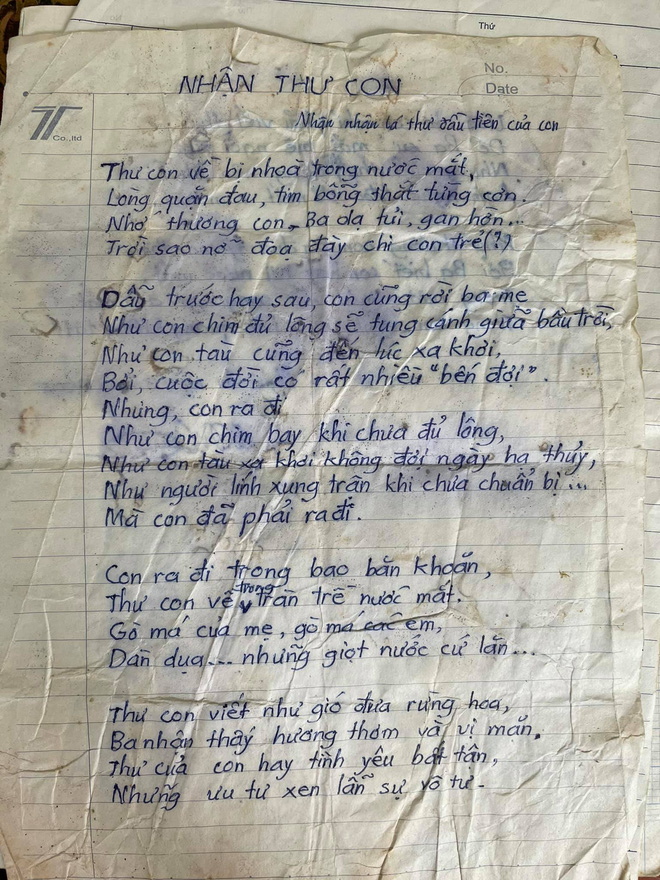 Thứ
No.
Date
Co.,ltd
NHẬN THƯ CON
Nhận nhận lá thư đầu tiên của con
Thư con về bị nhoà trong nước mắt,
Lòng quặn đau, tim bỗng thắt từng cơn.
Nhớ thương con, Ba dạ tủi, gan hờn...
Trời sao nỡ đoạ đày chi con trẻ(?)
Dẫu trước hay sau, con cũng rời ba mẹ
Như con chim đủ lông sẽ tung cánh giữa bầu trời,
Như con tàu cũng đến lúc xa khơi,
Bởi, cuộc đời có rất nhiều "bến đợi".
Nhưng, con ra đi
Như con chim bay khi chưa đủ lông,
Như con tàu xa khơi không đợi ngày hạ thủy,
Như người lính xung trận khi chưa chuẩn bị...
Mà con đã phải ra đi.
Con ra đi trong bao băn khoăn,
Thư con về trong tràn trề nước mắt.
Gò má của mẹ, gò má các em,
Dàn dụa... những giọt nước cứ lăn...
Thư con viết như gió đưa rừng hoa,
Ba nhận thấy hương thơm và vị mặn.
Thư của con hay tình yêu bất tận,
Những ưu tư xen lẫn sự vô tư.